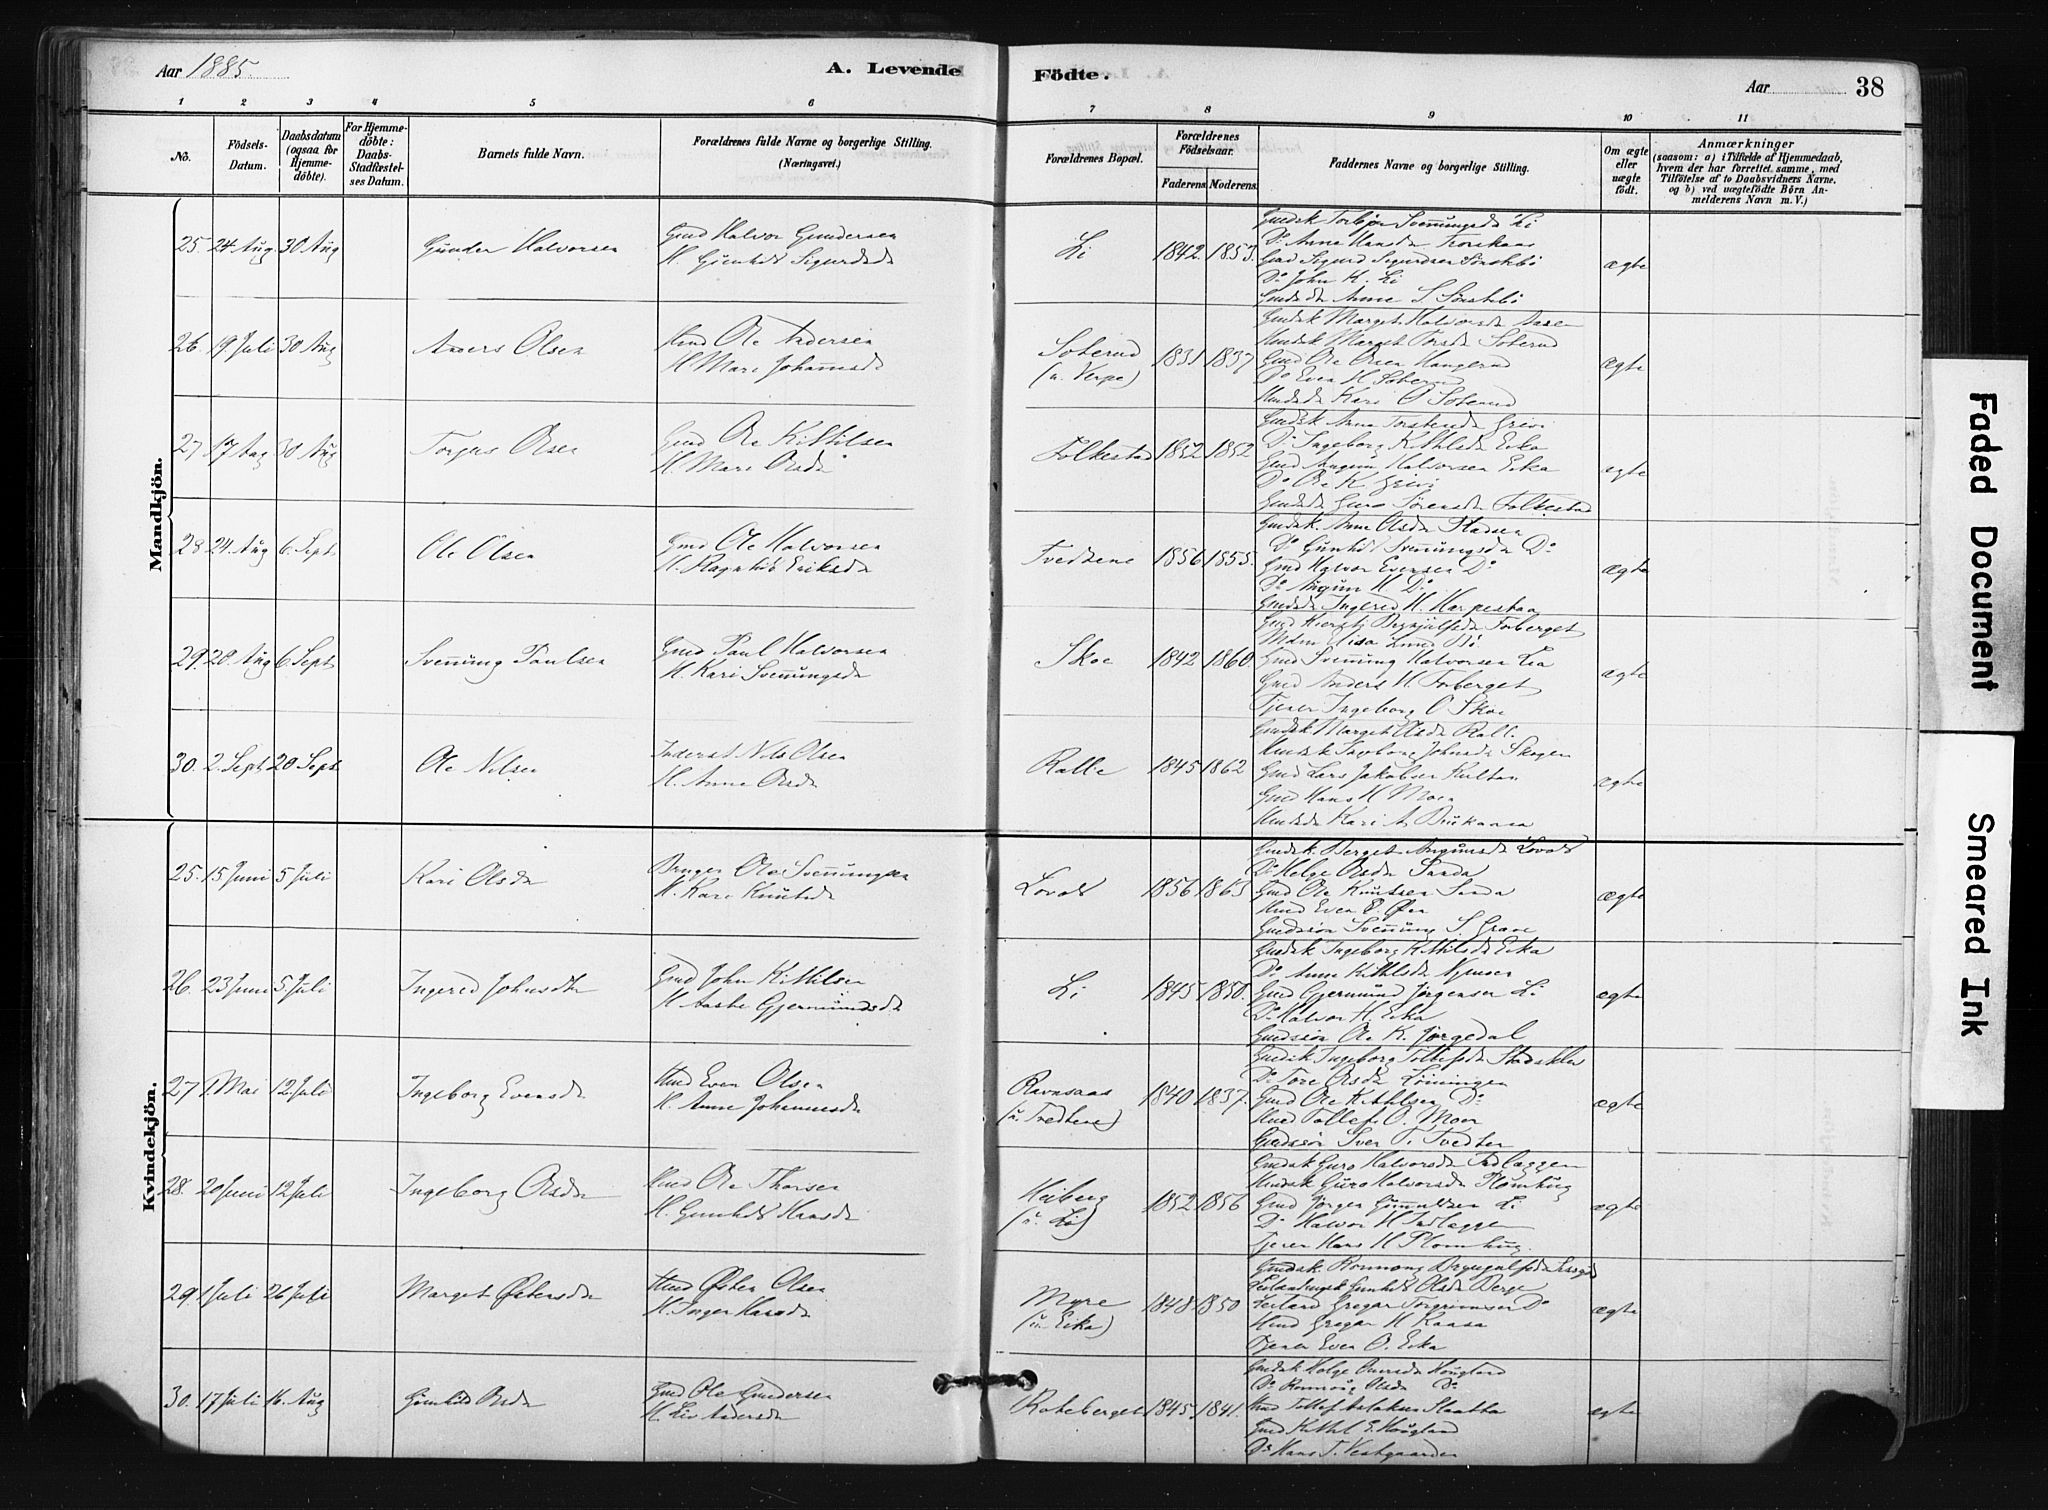 Aar 1885.
A. Levende Födte.
Aar
38
1 2 3 4 5 6 7 8 9 10 11
No.
Födsels-Datum.
Daabsdatum (ogsaa for Hjemme-döbte).
For Hjemme-döbte: Daabs-Stadfæstel-ses Datum.
Barnets fulde Navn.
Forældrenes fulde Navne og borgerlige Stilling. (Næringsvei.)
Forældrenes Bopæl.
Forældrenes Födselsaar.
Faderens. Moderens.
Faddernes Navne og borgerlige Stilling.
Om ægte eller uægte födt.
Anmærkninger
(saasom: a) i Tilfælde af Hjemmedaab, hvem der har forrettet samme, med Tilföielse af to Daabsvidners Navne, og b) ved uægtefödte Börn An-melderens Navn m. V.)
Mandkjön.
25. 24 Aug 30 Aug Gunder Halvorsen
Gmd Halvor Gundersen
H. Gunhild Sigurdsd
Li 1842. 1853.
Gmdsk Torbjør Svenningsd Li
Do Anne Hansd
Gmd Sigurd Sigurdsen Sønstebø
Do John K. Li
Gmdsd Anne S. Sønstebø
ægte
26. 19 Juli 30 Aug Anders Olsen
Hmd Ole Andersen
H. Mari Johannesd
Soterud (u. Verpe) 1831 1837
Gmdsk Marget Halvorsd Aasen
Hmdsk Marget Torsd Soterud
Gmd Ole Olsen Haugerud
Do Even H Soterud
Hmdsd Kari O Soterud
ægte
27 17 Aug 30 Aug Torjus Olsen
Gmd Ole Kittilsen
H. Mari Olsd
Folkestad 1852 1852
Gmdsk Anne Torstensd Grivi
Do Ingeborg Kittilsd Eika
Gmd Augun Halvorsen Eika
Do Ole K. Grivi
Gmdsd Guro Sørensd Folkestad
ægte
28 24. Aug 6. Sept Ole Olsen
Gmd Ole Halvorsen
H. Ragnhild Eriksd
Tvedtene 1856 1855.
Gmdsk. Anne Olsd
Do Gunhild Svenningsd Do
Gmd Halvor Evensen Do
Do Augun H Do
Gmdsd Ingered H. Harpestaa
ægte
29. 20. Aug 6 Sept Svenning Paulsen
Gmd Paul Halvorsen
H. Kari Svenningsd
Skoe 1842 1860.
Forberget
Lund Bø
Gmd Svenning Halvorsen Lia
Gmd Anders H. Forberget
Tjener Ingeborg O Skoe
ægte
30. 2. Sept 20 Sept. Ole Nilsen
Inderst Nils Olsen
H. Anne Olsd
Ralle 1845 1862
Gmdsk Marget Olsd Rall.
Hmdsk Ingeborg Johnsd Skogen
Gmd Lars Jakobsen Kultan
Gmd Hans H Moen
Hmdsd Kari A.
ægte
Kvindekjön.
25. 15 Juni 5 Juli Kari Olsd
Bruger Ole Svenningsen
H. Kari Knutsd
Lovald 1856 1863
Gmdsk. Berget Augunsd Lovald
Do Helge Olsd Sanda
Gmd Ole Knutsen Sanda
Hmd Even
Gmdssøn Svenning S. Grave
ægte
26. 23 Juni 5. Juli Ingered Johnsdtr
Gmd John Kittilsen
H. Aasbe Gjermundsd
Li 1845 1850.
Gmdsk Ingeborg Kittilsd Eika
Do Anne Kittilsd
Gmd Gjermund Jørgensen Li
Do Halvor H. Eika
Gmdssøn Ole K. Jørgedal
ægte
27 1. Mai 12. Juli Ingeborg Evensd
Hmd Even Olsen
H. Anne Johannesd
Ravnsaas (u. Tvedtene) 1840 1837.
Gmdsk Ingeborg Tollefsd
Do Tore Olsd Lønningen
Gmd Ole Kittilsen Do
Hmd Tollef O. Moen
Gmdssøn Sven T. Tvedten
ægte
28. 20 Juni 12 Juli Ingeborg Olsd
Hmd Ole Thorsen
H. Gunhild Hansd
Heiberg (u. Li) 1852 1856
Gmdsk Guro Halvorsd Indlæggen
Hmdsk Guro Halvorsd Plomhug
Gmd Jørgen Gunnulfsen Li
Do Halvor H Indlæggen
Tjener Hans H Plomhug
ægte
29. 1 Juli 26 Juli Marget Østensd
Hmd Østen Olsen
H. Inger Hansd
Myre (u. Eika) 1848 1850
Gmdsk. Ronnoug Brynjulfsd
Gunhild Olsd Berge
Gregar Torgrimsen Do
Hmd Gregar H Kaasa
Tjener Even O. Eika
ægte
30. 17 Juli 16. Aug Gunhild Olsd
Gmd Ole Gundersen
H. Liv Andersd
Roteberget 1845 1841.
Gmdsk Helge Hougland
Do Ronnoug Olsd Do
Hmd Tollef Aslaksen Slaatta
Gmd Kittil E. Hougland
Do Hans T. Vestgaarden
ægte
Faded Document
Smeared Ink